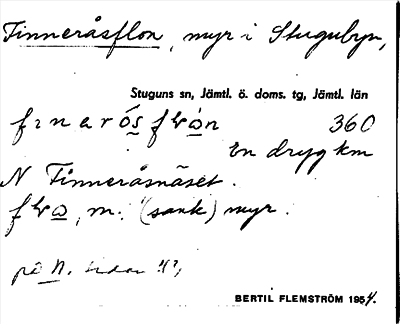 Finneråsflon, myr i Stugubyn,
Stuguns sn, Jämtl. ö. doms. tg, Jämtl. län
fɪnerósfɫón 360
En dryg km
N Finneråsnäset.
fɫo, m. (sank) myr.
på N. sidan
BERTIL FLEMSTRÖM 1954.